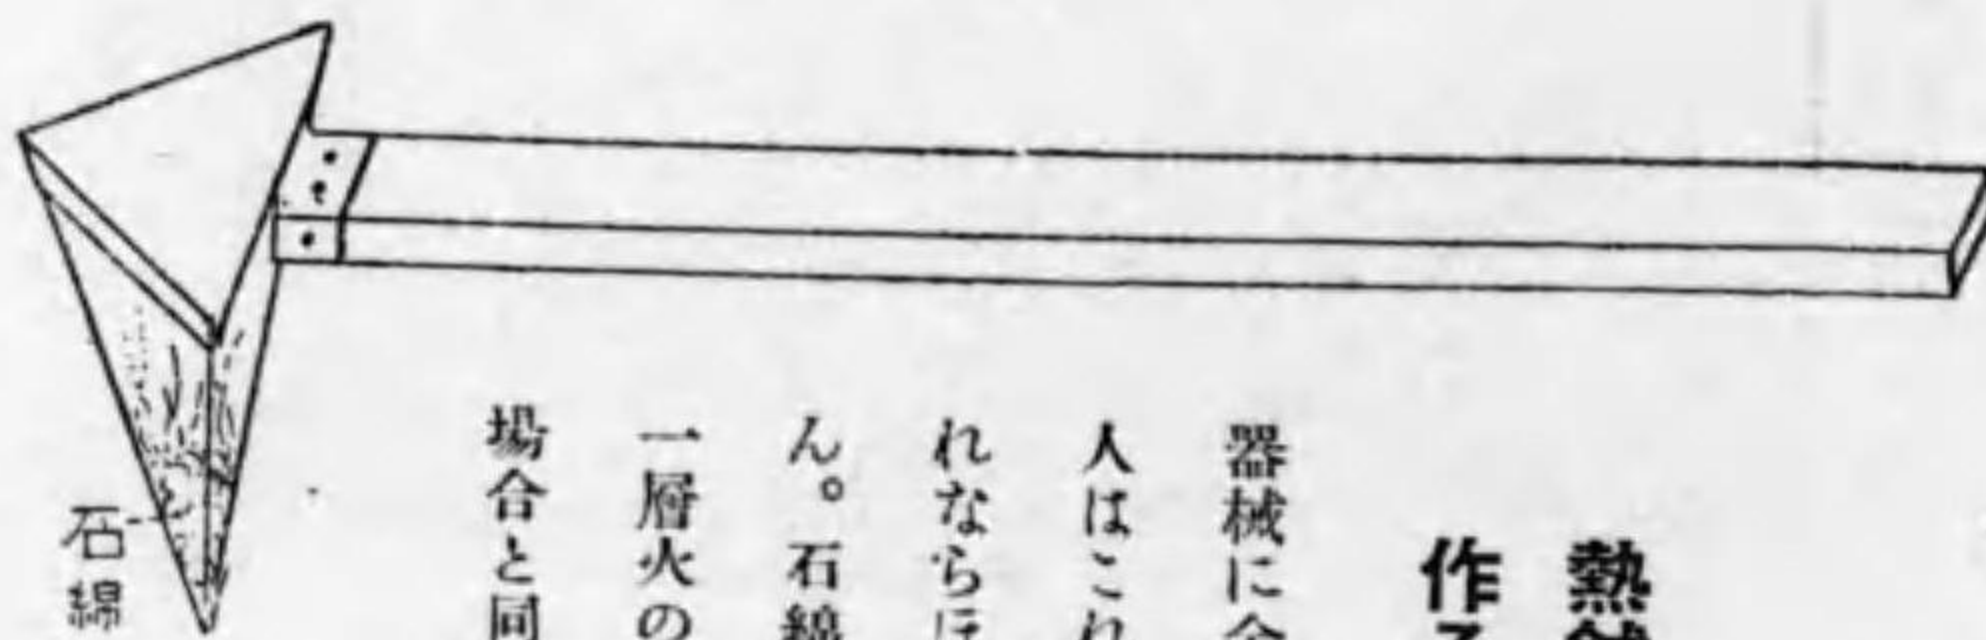 熱
作
器械に
人はこ
れならほ
ん。石綿
一層火の
場合と同
石綿